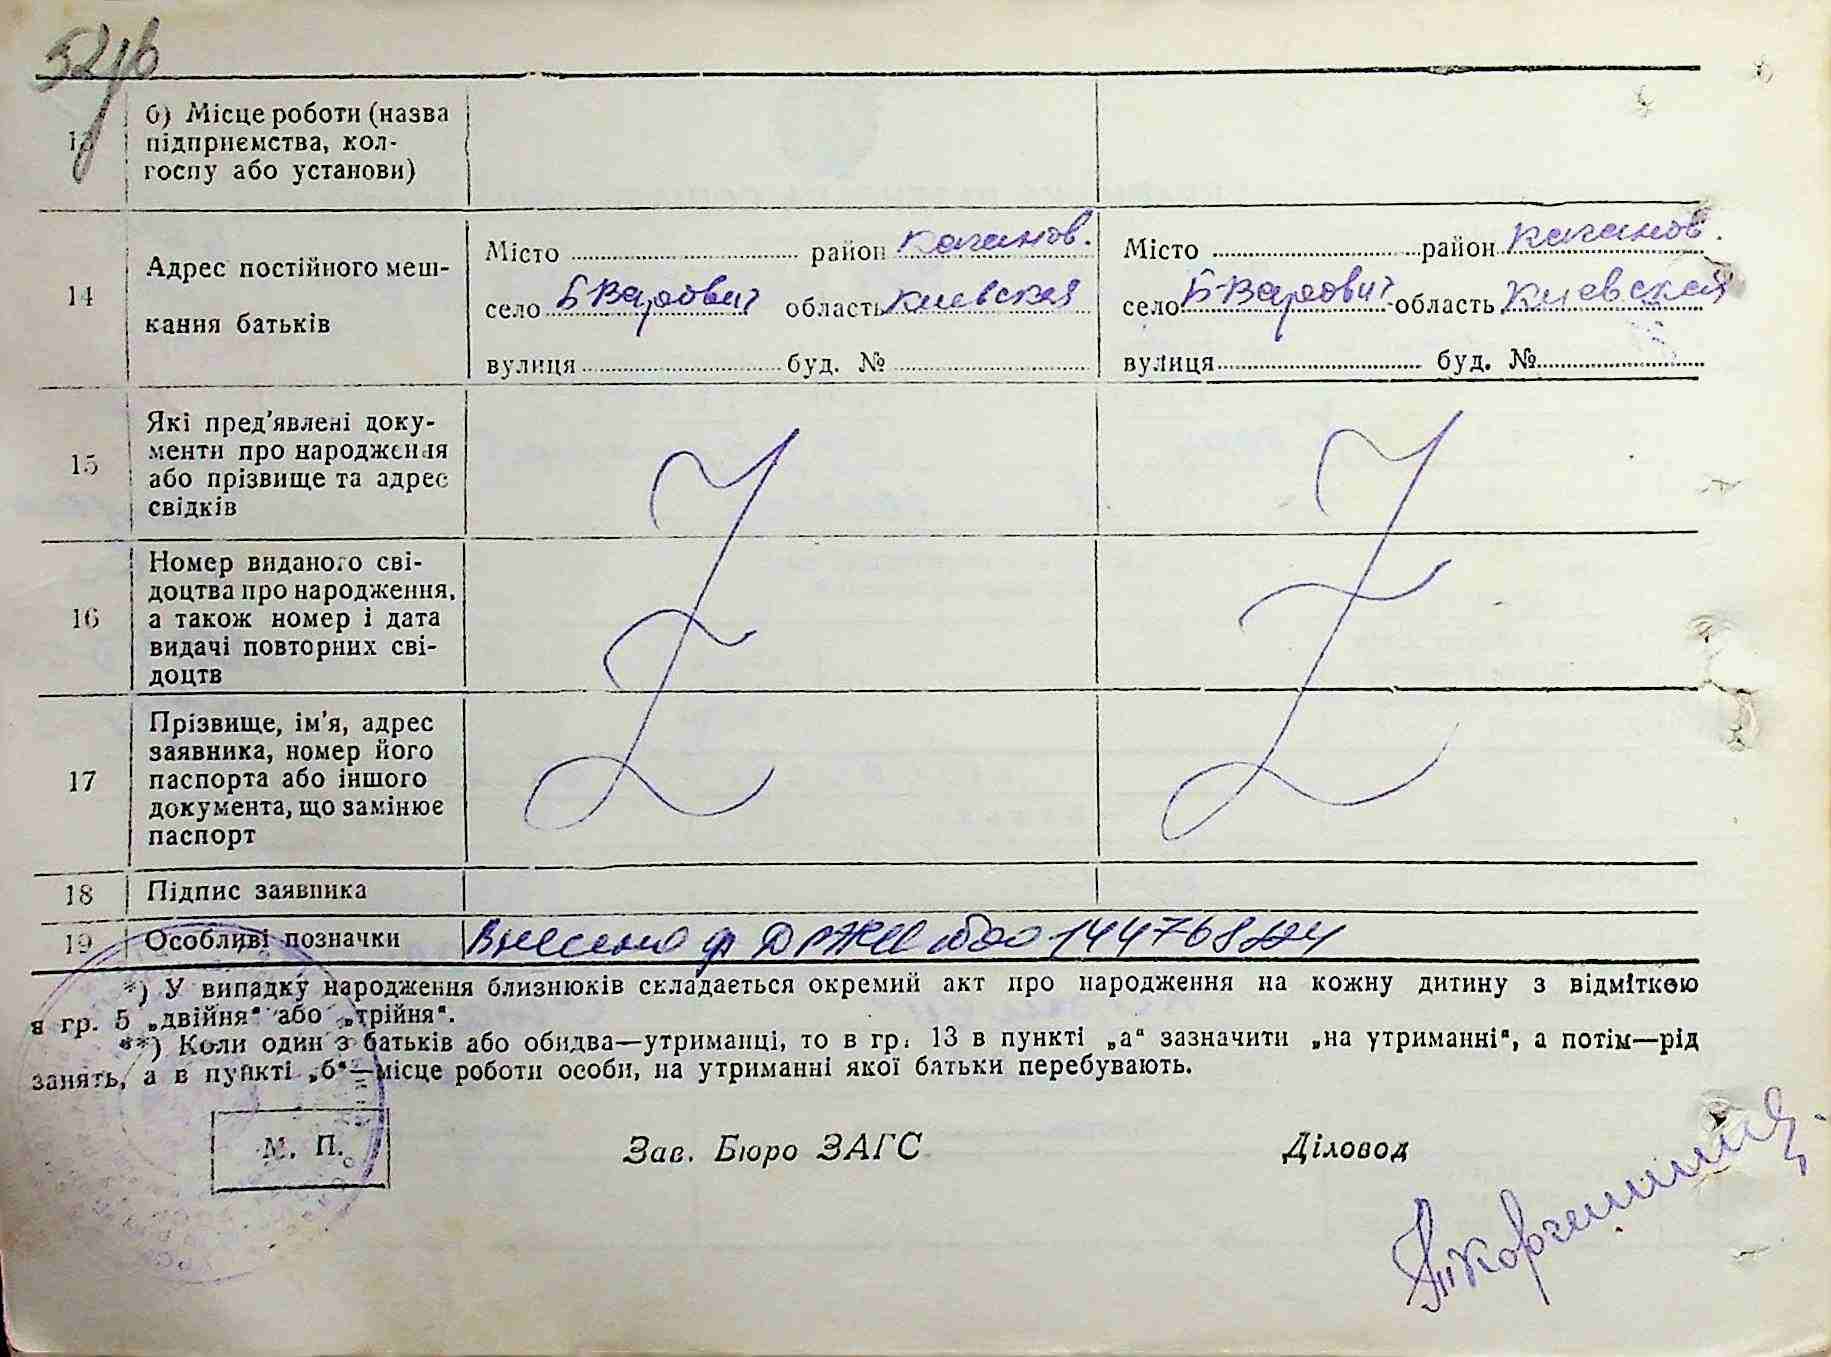 13
б) Місце роботи (назва
підприємства, кол-
госпу або установи)
14
Адрес постійного меш-
кання батьків
Місто район Каганов.
село Б Варович область Киевская
вулиця буд. №
Місто район Каганов.
село Б Варович область Киевская
вулиця буд. №
15
Які пред'явлені доку-
менти про народження
або прізвище та адрес
свідків
16
Номер виданого сві-
доцтва про народження,
а також номер і дата
видачі повторних сві-
доцтв
17
Прізвище, ім'я, адрес
заявника, номер його
паспорта або іншого
документа, що замінює
паспорт
18
Підпис заявника
19
Особливі позначки
Внесено
*) У випадку народження близнюків складається окремий акт про народження на кожну дитину з відміткою
в гр. 5 „двійня“ або „трійня“.
**) Коли один з батьків або обидва—утриманці, то в гр. 13 в пункті „а“ зазначити „на утриманні“, а потім—рід
занять, а в пункті „б“—місце роботи особи, на утриманні якої батьки перебувають.
М. П.
Зав. Бюро ЗАГС
Діловод